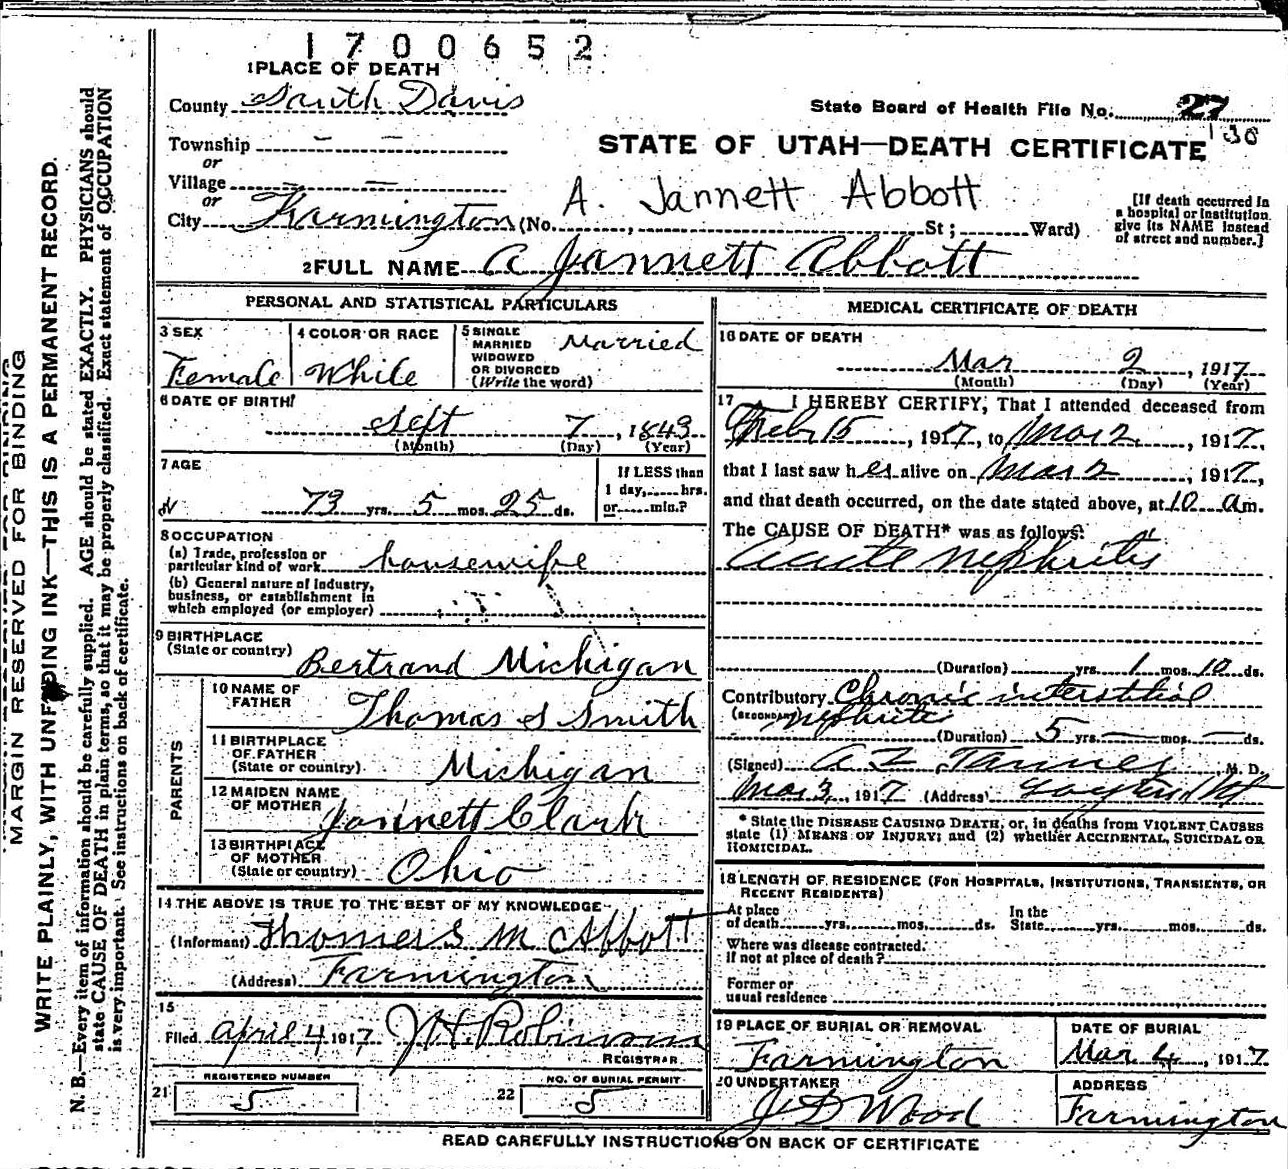 1700652
1 PLACE OF DEATH
County South Davis
State Board of Health File No. 27
130
Township - -
or
STATE OF UTAH—DEATH CERTIFICATE
Village - —
or
A. Jannett Abbott
City Farmington (No. , St ; Ward)
[If death occurred in a hospital or institution give its NAME instead of street and number.]
2 FULL NAME A Jannett Abbott
PERSONAL AND STATISTICAL PARTICULARS
3 SEX
Female
4 COLOR OR RACE
White
5 SINGLE
MARRIED
WIDOWED
OR DIVORCED
(Write the word)
Married
6 DATE OF BIRTH
Sept 7, 1843
(Month) (Day) (Year)
7 AGE
73 yrs. 5 mos. 25 ds.
If LESS than
1 day, hrs.
or min.?
8 OCCUPATION
(a) Trade, profession or
particular kind of work housewife
(b) General nature of Industry,
business, or establishment in
which employed (or employer)
9 BIRTHPLACE
(State or country) Bertrand Michigan
PARENTS
10 NAME OF
FATHER Thomas S Smith
11 BIRTHPLACE
OF FATHER
(State or country) Michigan
12 MAIDEN NAME
OF MOTHER Jannett Clark
13 BIRTHPLACE
OF MOTHER
(State or country) Ohio
14 THE ABOVE IS TRUE TO THE BEST OF MY KNOWLEDGE
(Informant) Thomas M Abbott
(Address) Farmington
15
Filed April 4 1917, J H. Robinson
REGISTRAR
REGISTERED NUMBER
21 5
NO. OF BURIAL PERMIT
22 5
MEDICAL CERTIFICATE OF DEATH
16 DATE OF DEATH
Mar 2, 1917
(Month) (Day) (Year)
17 I HEREBY CERTIFY, That I attended deceased from
Feb 15, 1917, to Mar 2, 1917,
that I last saw her alive on Mar 2, 1917,
and that death occurred, on the date stated above, at 10 am.
The CAUSE OF DEATH* was as follows:
acute nephritis
(Duration) yrs. 1 mos. 10 ds.
Contributory Chronic interstitial
(SECONDARY) nephritis
(Duration) 5 yrs. — mos. — ds.
(Signed) A Z Tanner M. D.
Mar 3, 1917 (Address) Layton Ut
* State the DISEASE CAUSING DEATH, or, in deaths from VIOLENT CAUSES
state (1) MEANS OF INJURY; and (2) whether ACCIDENTAL, SUICIDAL OR
HOMICIDAL.
18 LENGTH OF RESIDENCE (FOR HOSPITALS, INSTITUTIONS, TRANSIENTS, OR
RECENT RESIDENTS)
At place In the
of death yrs. mos. ds. State yrs. mos. ds.
Where was disease contracted.
If not at place of death?
Former or
usual residence
19 PLACE OF BURIAL OR REMOVAL
Farmington
DATE OF BURIAL
Mar 4, 1917
20 UNDERTAKER
J D Wood
ADDRESS
Farmington
READ CAREFULLY INSTRUCTIONS ON BACK OF CERTIFICATE
MARGIN RESERVED FOR BINDING
WRITE PLAINLY, WITH UNFADING INK—THIS IS A PERMANENT RECORD.
N. B.—Every item of information should be carefully supplied. AGE should be stated EXACTLY. PHYSICIANS should
state CAUSE OF DEATH in plain terms, so that it may be properly classified. Exact statement of OCCUPATION
is very important. See instructions on back of certificate.